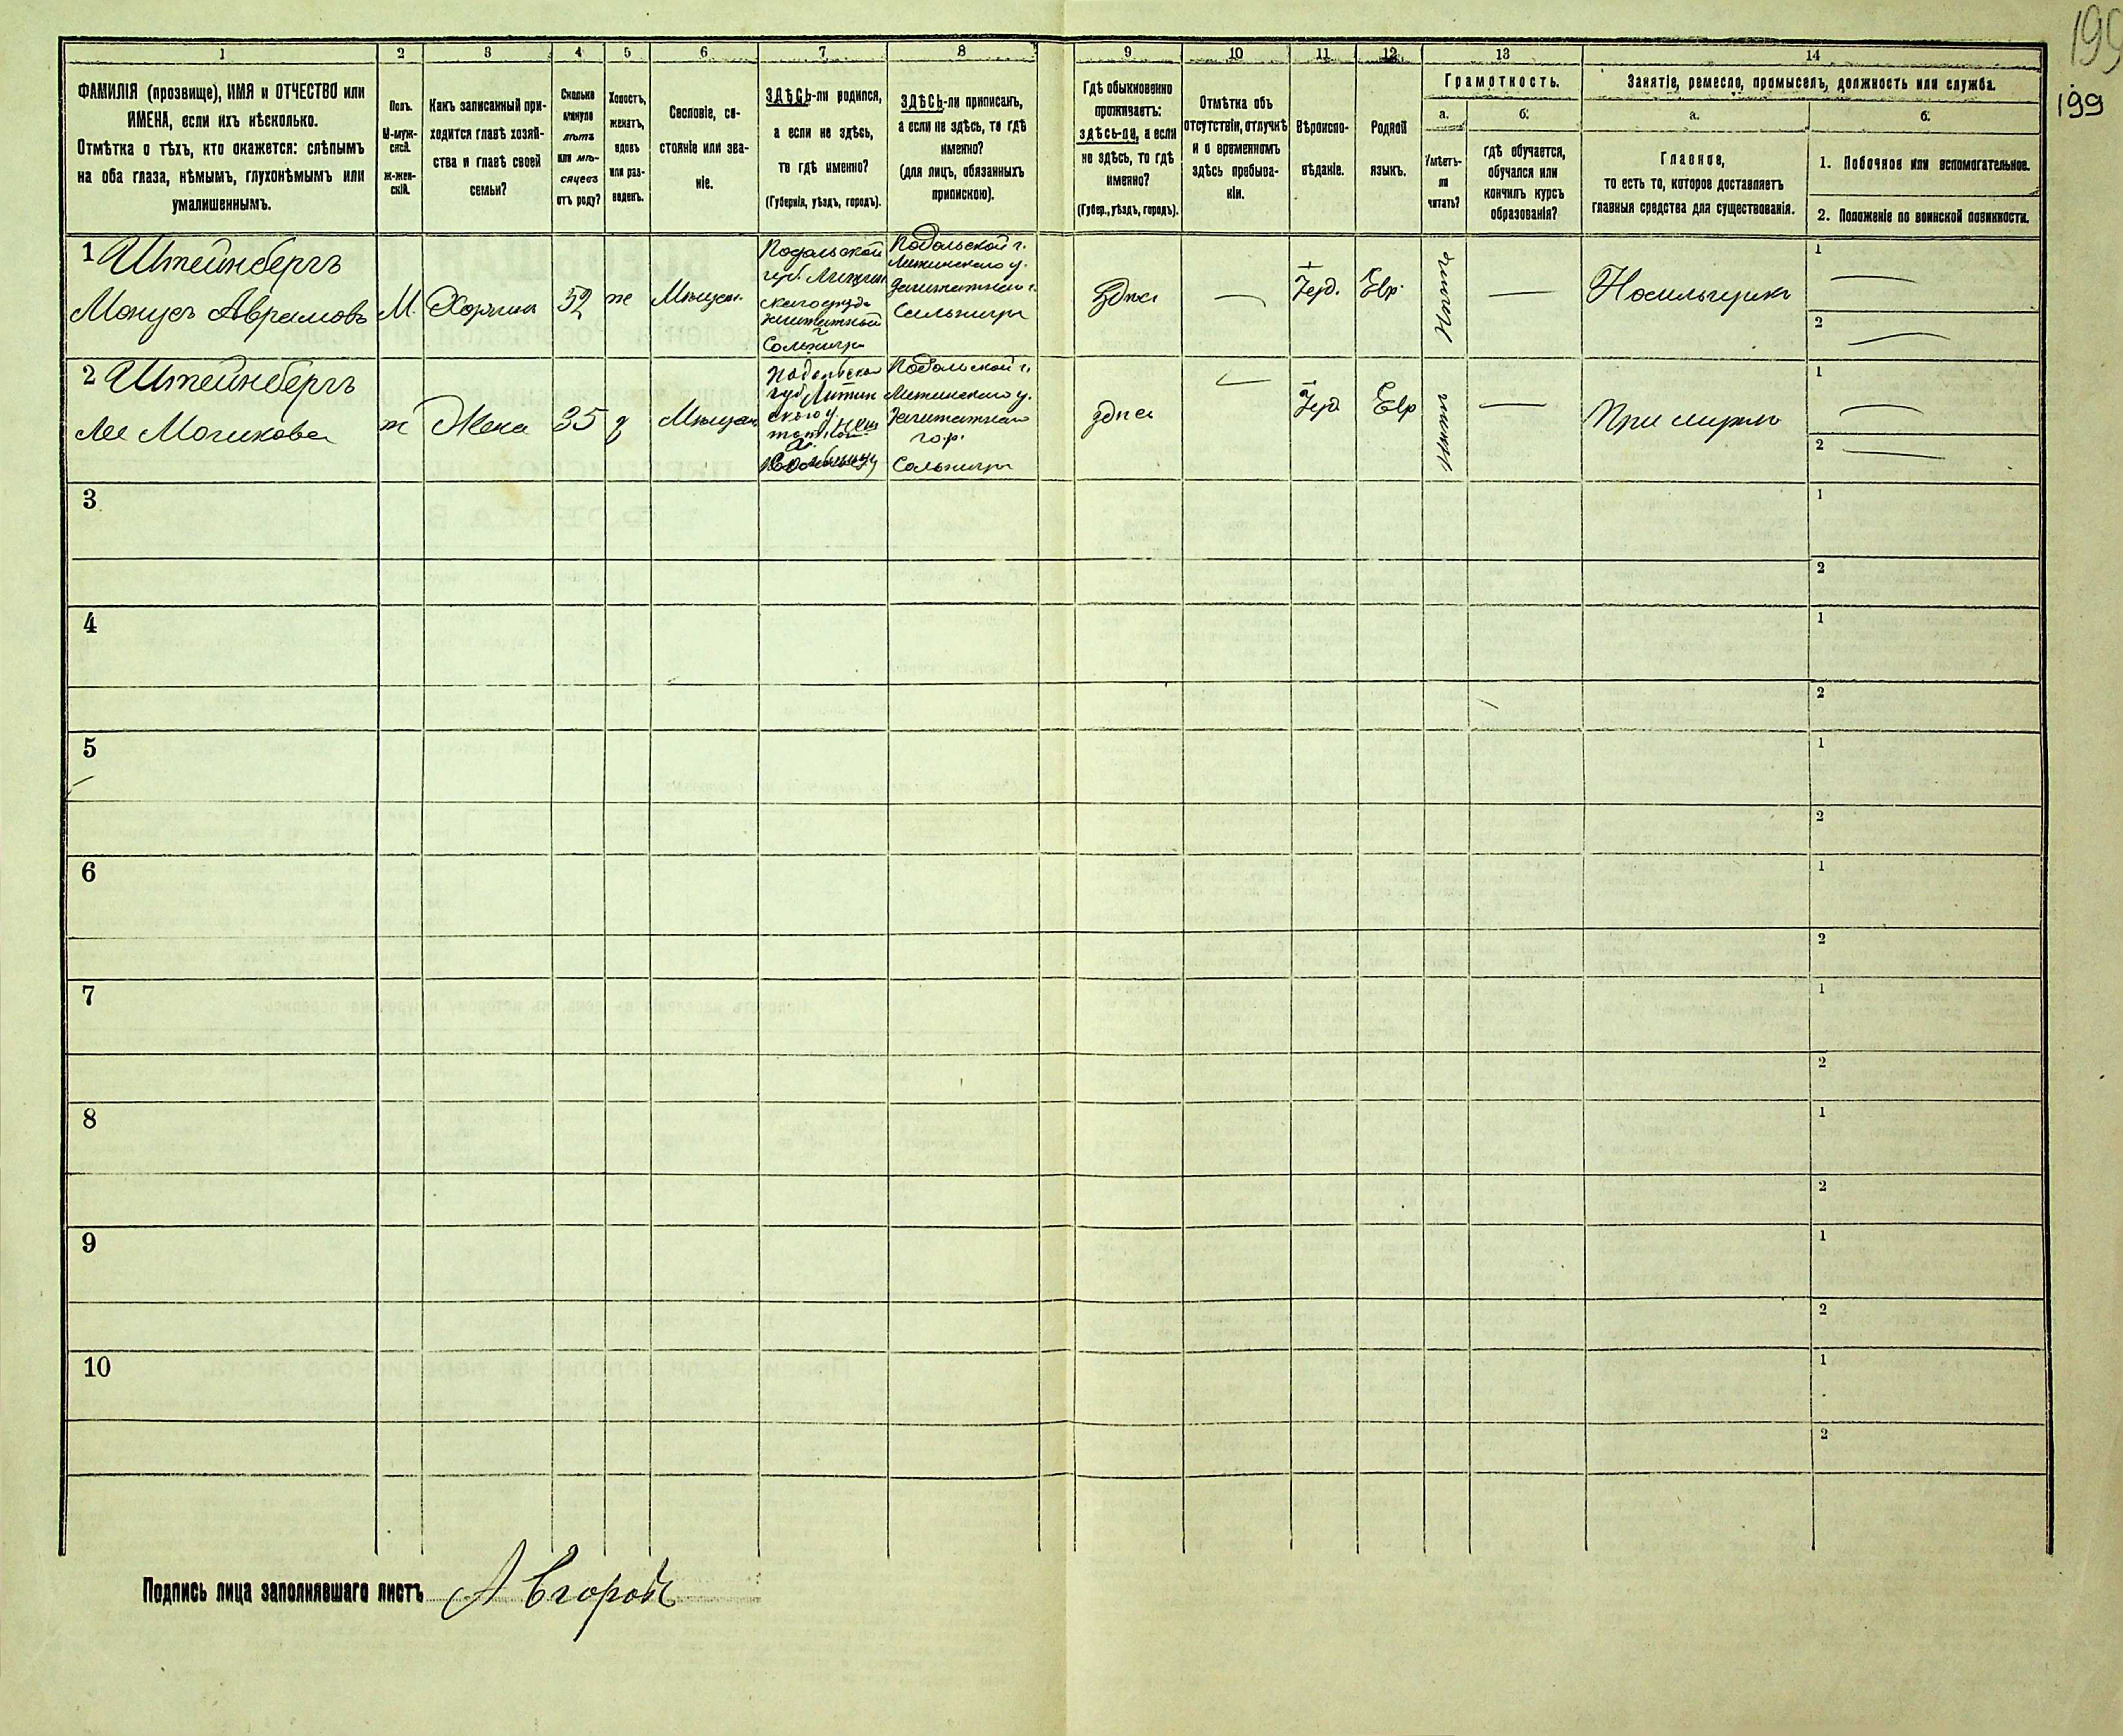 199
199
1 2 3 4 5 6 7 8 9 10 11 12 13 14
ФАМИЛІЯ (прозвище), ИМЯ и ОТЧЕСТВО или
ИМЕНА, если ихъ нѣсколько.
Отмѣтка о тѣхъ, кто окажется: слѣпымъ
на оба глаза, нѣмымъ, глухонѣмымъ или
умалишеннымъ.
Полъ.
М-муж-
ской.
Ж-жен-
скій.
Какъ записанный при-
ходится главѣ хозяй-
ства и главѣ своей
семьи?
Сколько
минуло
лѣтъ
или мѣ-
сяцевъ
отъ роду?
Холостъ,
женатъ,
вдовъ
или раз-
веденъ.
Сословіе, со-
стояніе или зва-
ніе.
ЗДѢСЬ-ли родился,
а если не здѣсь,
то гдѣ именно?
(Губернія, уѣздъ, городъ).
ЗДѢСЬ-ли приписанъ,
а если не здѣсь, то гдѣ
именно?
(для лицъ, обязанныхъ
припискою).
Гдѣ обыкновенно
проживаетъ:
здѣсь-ли, а если
не здѣсь, то гдѣ
именно?
(Губер., уѣздъ, городъ).
Отмѣтка объ
отсутствіи, отлучкѣ
и о временномъ
здѣсь пребыва-
ніи.
Вѣроиспо-
вѣданіе.
Родной
языкъ.
Грамотность.
а.
Умѣетъ-
ли
читать?
б.
гдѣ обучается,
обучался или
кончилъ курсъ
образованія?
Занятіе, ремесло, промыселъ, должность или служба.
а.
Главное,
то есть то, которое доставляетъ
главныя средства для существованія.
б.
1. Побочное или вспомогательное.
2. Положеніе по воинской повинности.
1 Штейнбергъ
Монусъ Аврамовъ
М.
Хозяин
52
ж
Мѣщан.
Подольской
губ. Литин
скаго уѣзда
Сольницы
Подольской г.
Литинскаго у.
Заштатнаго г.
Сальницы
Здѣсь
—
Іуд.
Евр.
—
Носильщикъ
1 —
2 —
2 Штейнбергъ
Лея
ж
Жена
35
з
Мѣщан
Подольской
губ Литин
скаго у.
Подольской г.
Литинскаго у.
Заштатнаго
гор.
Сальницы
здѣсь
—
Іуд
Евр
—
При мужѣ
1 —
2 —
3 1
2
4 1
2
5 1
2
6 1
2
7 1
2
8 1
2
9 1
2
10 1
2
Подпись лица заполнявшаго листъ